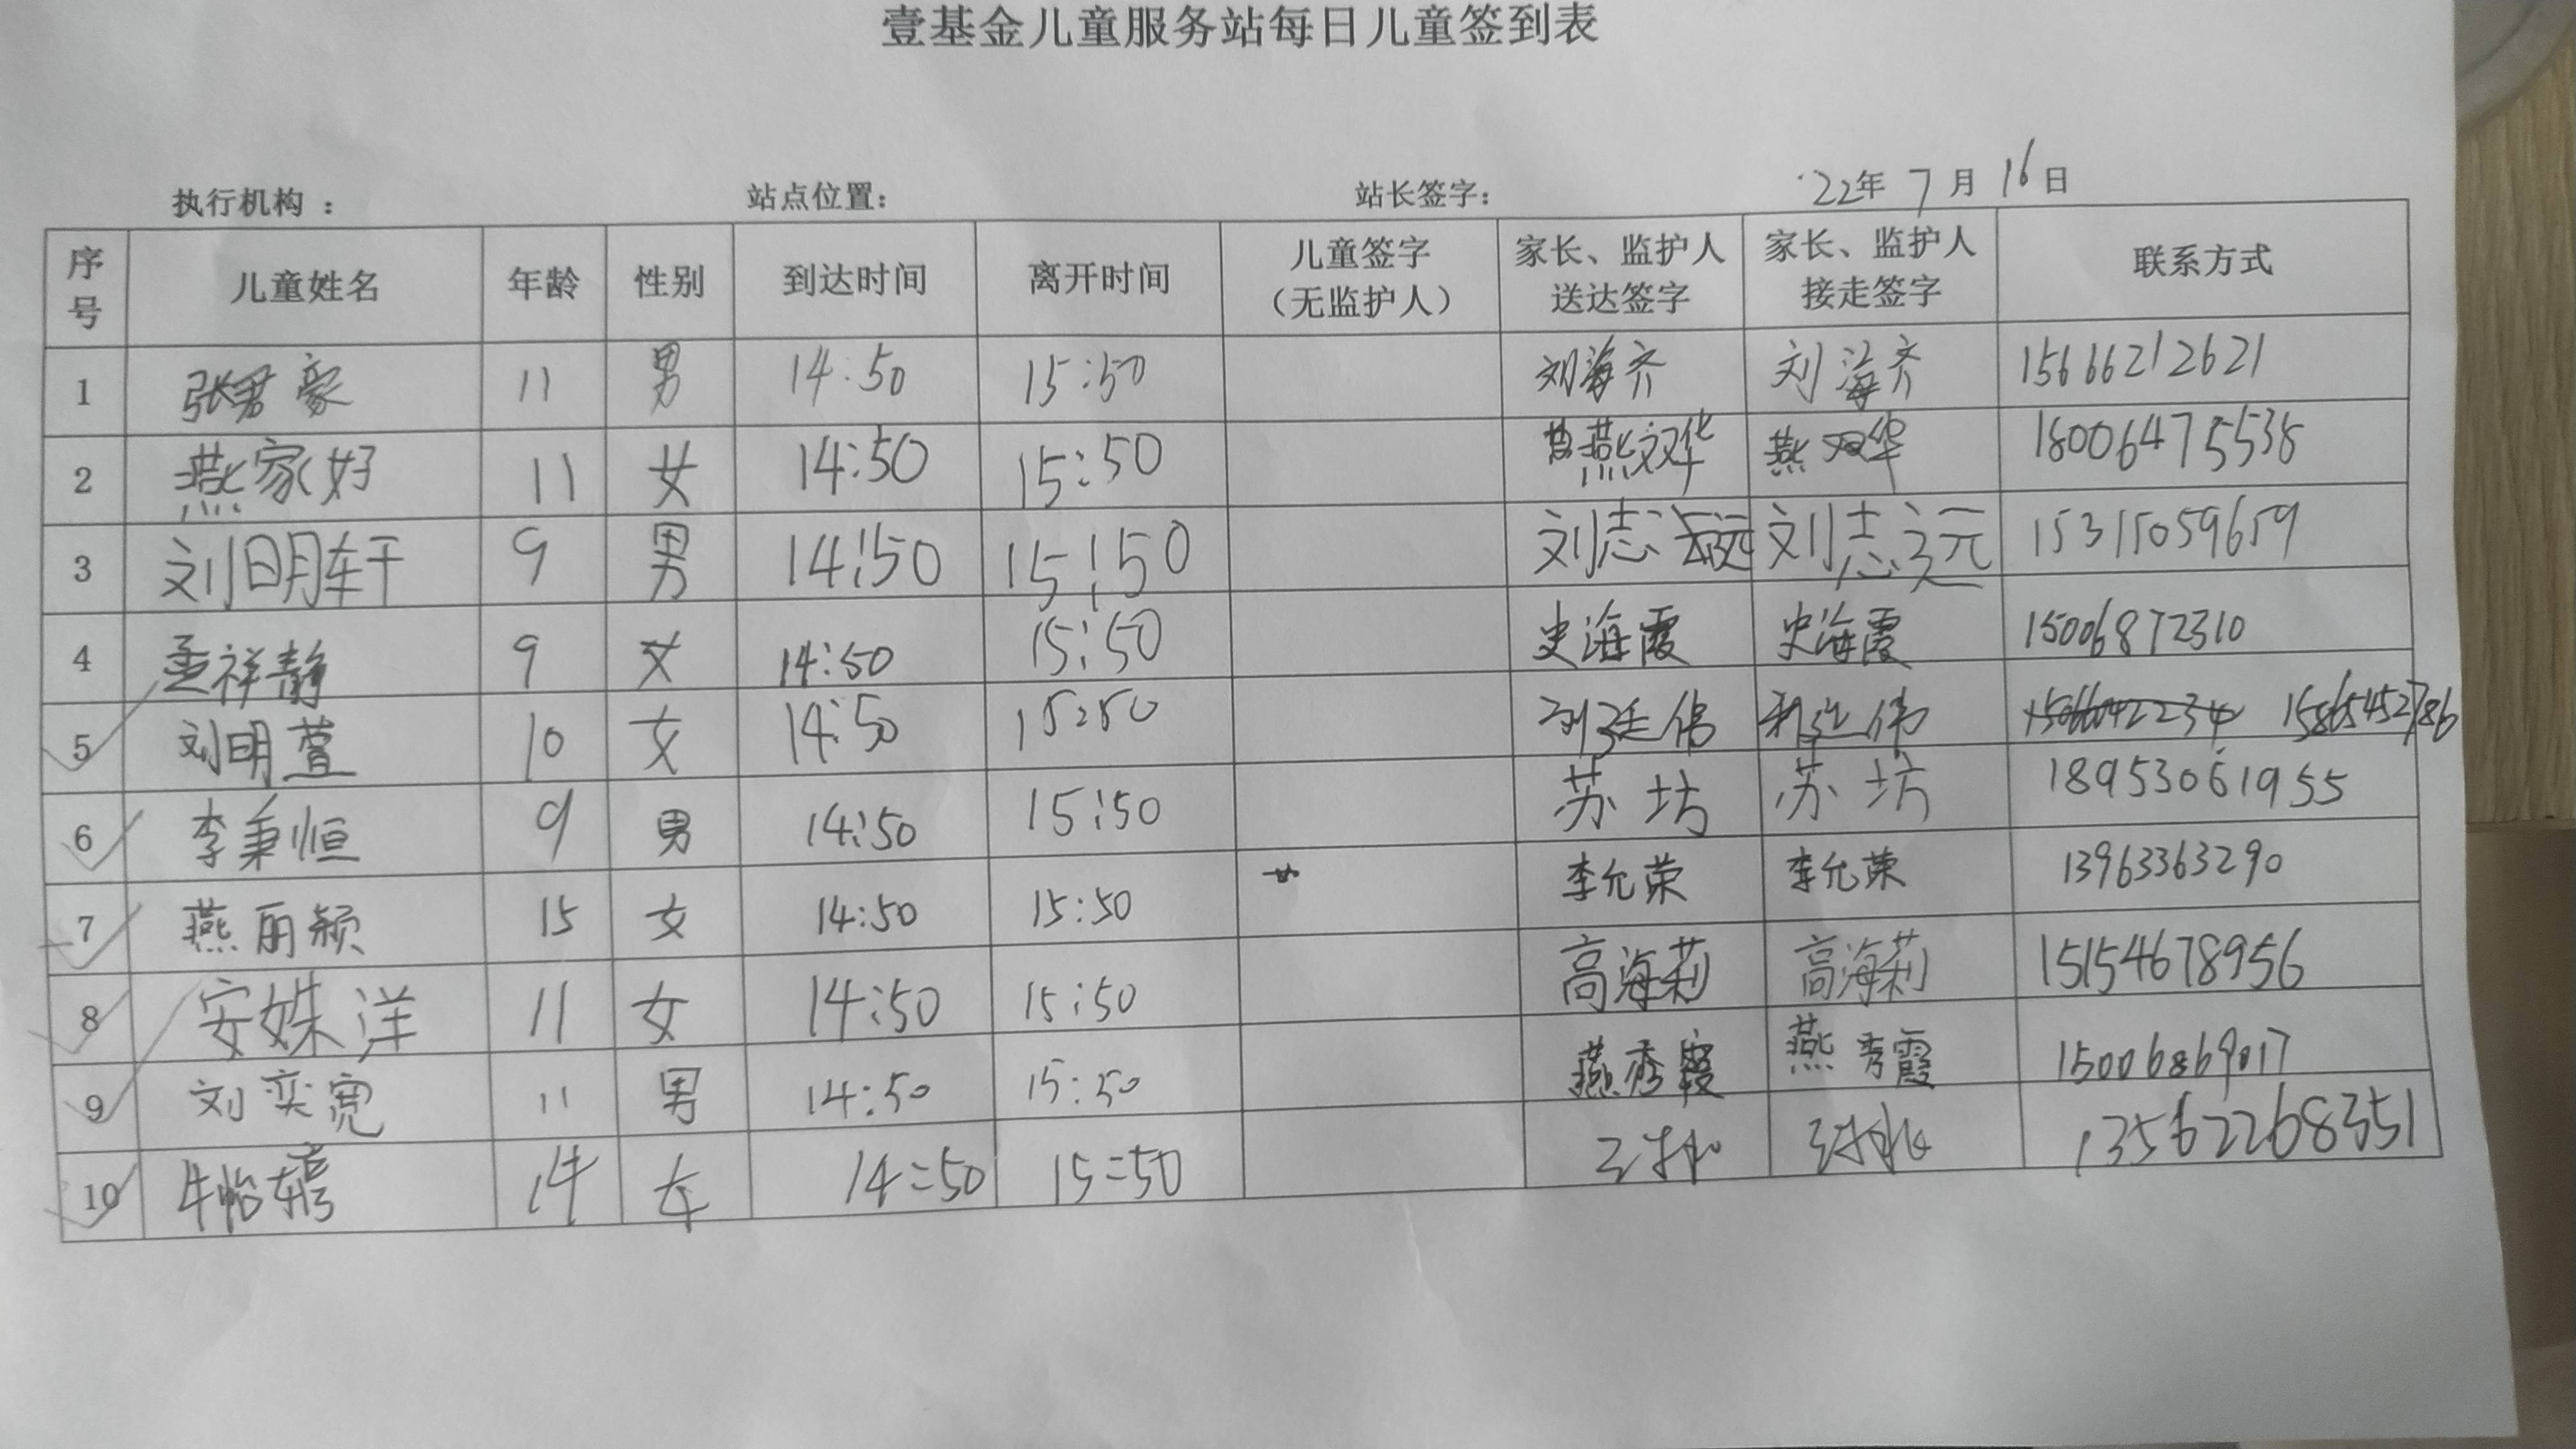 壹基金儿童服务站每日儿童签到表
执行机构： 站点位置： 站长签字： 22年 7月 16日
序号 儿童姓名 年龄 性别 到达时间 离开时间 儿童签字（无监护人） 家长、监护人送达签字 家长、监护人接走签字 联系方式
1 张君豪 11 男 14:50 15:50 刘海齐 刘海齐 15666212621
2 燕家好 11 女 14:50 15:50 燕双华 燕双华 18006475538
3 刘明轩 9 男 14:50 15:50 刘志远 刘志远 15315059659
4 孟祥静 9 女 14:50 15:50 史海霞 史海霞 15006872310
5 刘明萱 10 女 14:50 15:50 刘廷伟 刘廷伟 15865452786
6 李秉恒 9 男 14:50 15:50 苏坊 苏坊 18953061955
7 燕丽颖 15 女 14:50 15:50 李允荣 李允荣 13963363290
8 安姝洋 11 女 14:50 15:50 高海莉 高海莉 15154678956
9 刘奕宽 11 男 14:50 15:50 燕秀霞 燕秀霞 15006869017
10 牛怡 14 女 14:50 15:50 13562268351